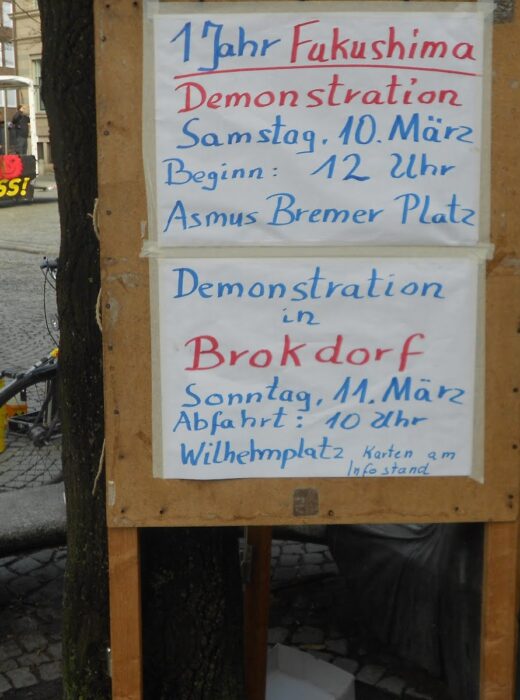 1 Jahr Fukushima
Demonstration
Samstag, 10. März
Beginn: 12 Uhr
Asmus Bremer Platz
Demonstration
in
Brokdorf
Sonntag, 11. März
Abfahrt: 10 Uhr
Wilhelmplatz Karten am
Infostand
SS!